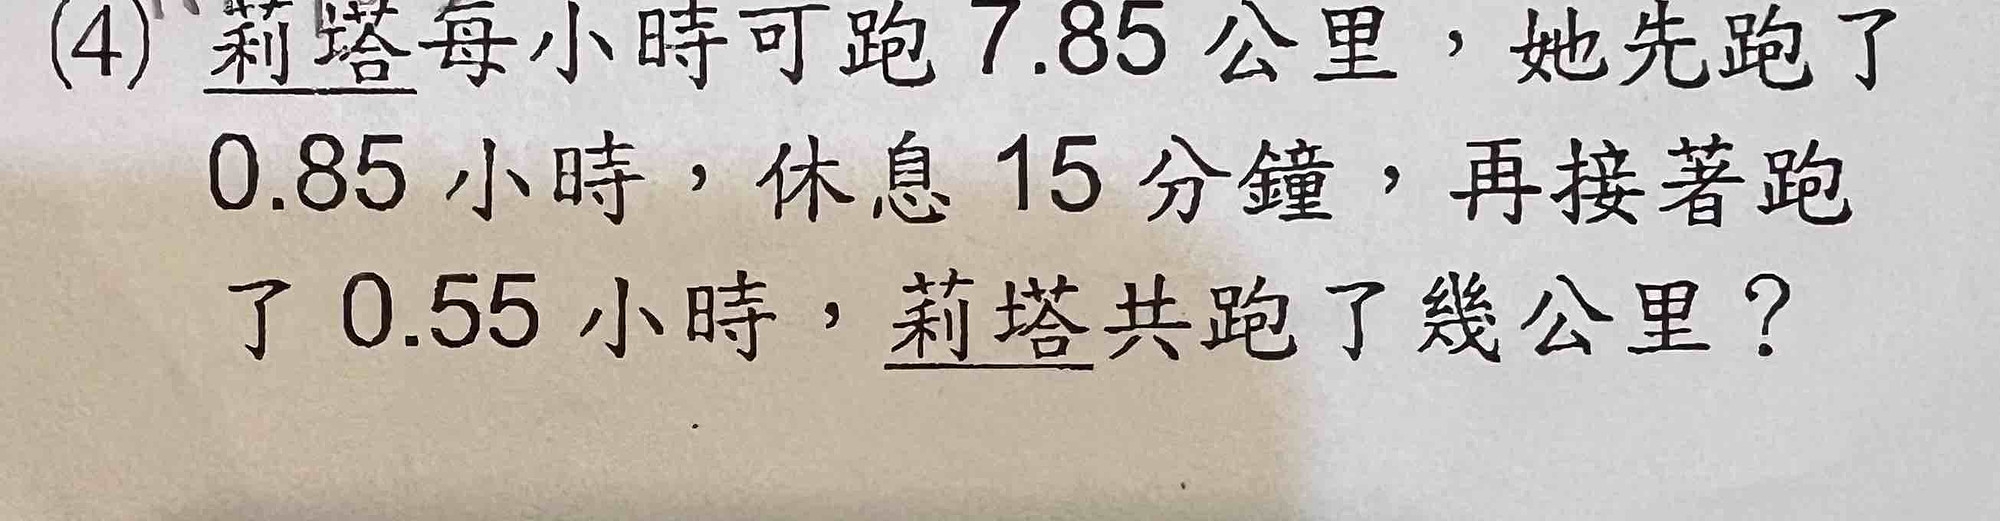 (4) 莉塔每小時可跑 7.85 公里，她先跑了
0.85 小時，休息 15 分鐘，再接著跑
了 0.55 小時，莉塔共跑了幾公里？